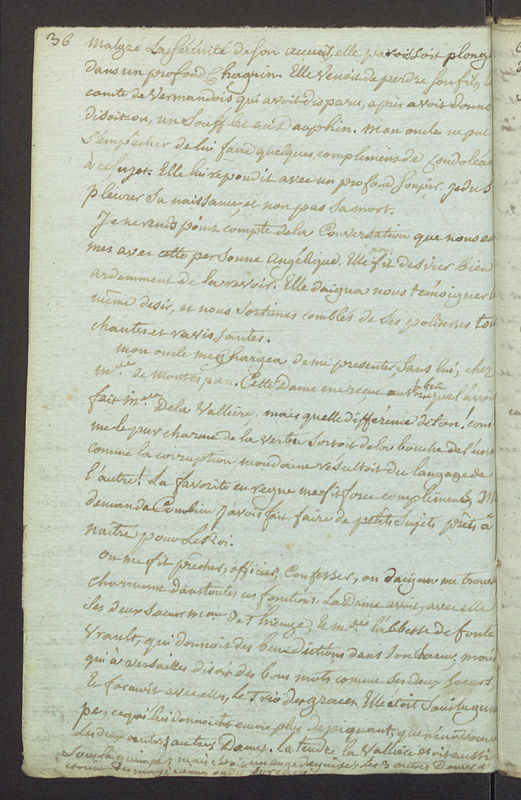 36
Malgré la sérénité de son accueil, elle paroissoit plongé
dans un profond Chagrin. Elle venoit de perdre son fils, l
comte de Vermandois, qui avoit disparu, après avoir donné
disoit on, un soufflet au Dauphin. mon oncle ne put
s'empêcher de lui faire quelques complimens de Condoléan
à ce sujet. Elle lui répondit avec un profond soupir. je du s
pleurer sa naissance, et non pas sa mort.
Je ne rends point compte de la Conversation que nous eu
mes avec cette personne Angélique. Elle nous fit désirer bien
ardemment de la revoir. Elle daigna nous témoigner l
même desir, et nous sortimes comblés de ses politesses tou
chantes et ravissantes.
mon oncle me chargea de me présenter, sans lui, chez
m.me de Montespan. Cette Dame me reçut aussi bien que l'avoit
fait m.me De la Vallière. mais quelle différence de ton! com
me le pur charme de la vertu sortoit de la bouche de l'une
comme la corruption mondaine résultoit du langage de
l'autre! La favorite en regne me fit force complimens, M
demanda Combien J'avois fait faire de petits sujets prêts à
naître pour Le Roi.
On me fit prêcher, officier, Confesser, on daigna me trouver
charmant dans toutes ces fonctions. La Dame avoit avec elle
ses deux sœurs mme De Thiange, et mme l'abbesse de Fonte
vrault, qui donnoit des bénédictions dans son chœur, mais
qui à versailles disoit des bons mots comme ses deux sœurs,
Et formoit avec elles, le Trio des graces. Elle étoit sans
pe, ce qui lui donnoit encore plus de piquant,
les deux autres Dames. La tendre la Vallière étoit aussi
sous la guimpe; mais c'étoit un ange de, Les 3 autres Dames